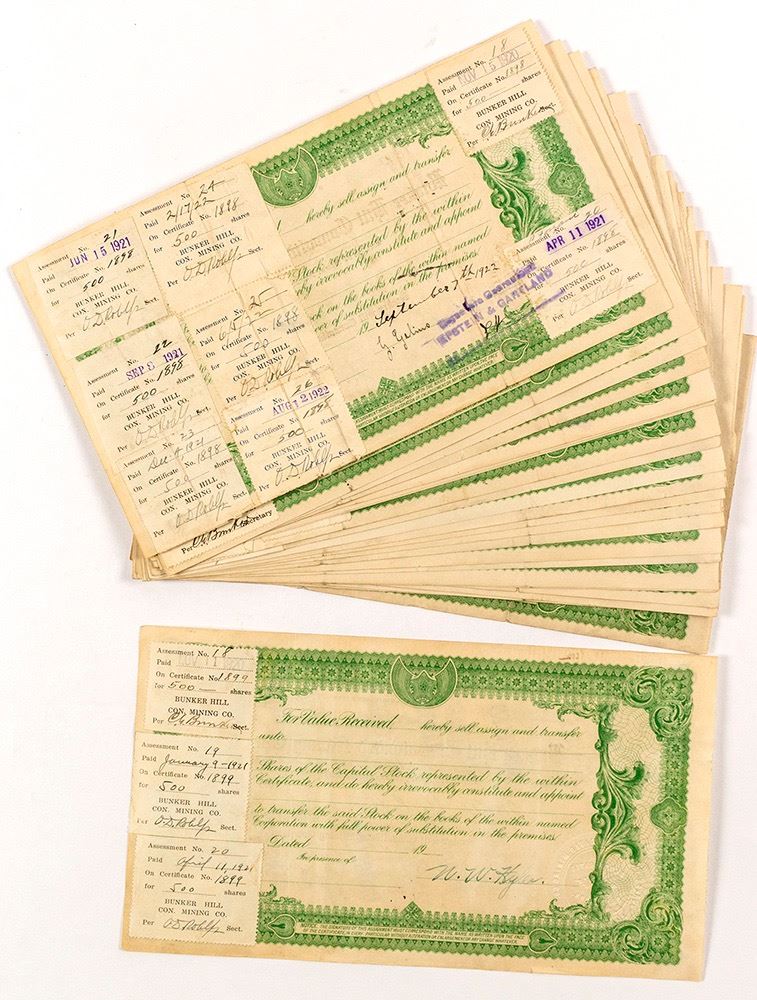 Assessment No. 18
Paid NOV 15 1920
On Certificate No. 1898
for 500 shares
BUNKER HILL
CON. MINING CO.
Per
hereby sell assign and transfer
Stock represented by the within
irrevocably constitute and appoint
on the books of the within named
of substitution in the premises.
19
September 7th 1922
Signature Guaranteed
EPSTEIN &
Assessment No. 21
Paid JUN 15 1921
On Certificate No. 1898
for 500 shares
BUNKER HILL
CON. MINING CO.
Per O.D. Rohlfs Sect.
Assessment No. 24
Paid 2/17/22
On Certificate No. 1898
for 500 shares
BUNKER HILL
CON. MINING CO.
Per O.D. Rohlfs Sect.
Assessment No.
APR 11 1921
On Certificate No. 1898
for shares
BUNKER HILL
CON. MINING CO.
Per
Assessment No. 22
Paid SEP 8 1921
On Certificate No. 1898
for 500 shares
BUNKER HILL
CON. MINING CO.
Per O.D. Rohlfs Sect.
Assessment No. 25
Paid
On Certificate No. 1898
for 500 shares
BUNKER HILL
CON. MINING CO.
Per O.D. Rohlfs Sect.
Assessment No. 23
Paid 1921
On Certificate No. 1898
for 500 shares
BUNKER HILL
CON. MINING CO.
Per O.D. Rohlfs Sect.
Assessment No. 26
Paid AUG 12 1922
On Certificate No. 1898
for 500 shares
BUNKER HILL
CON. MINING CO.
Per O.D. Rohlfs Sect.
Per Secretary
Assessment No. 18
Paid 1920
On Certificate No. 1899
for 500 shares
BUNKER HILL
CON. MINING CO.
Per Sect.
Assessment No. 19
Paid January 9-1921
On Certificate No. 1899
for 500 shares
BUNKER HILL
CON. MINING CO.
Per O.D. Rohlfs Sect.
Assessment No. 20
Paid April 11, 1921
On Certificate No. 1899
for 500 shares
BUNKER HILL
CON. MINING CO.
Per O.D. Rohlfs Sect.
For Value Received hereby sell assign and transfer
unto
Shares of the Capital Stock represented by the within
Certificate, and do hereby irrevocably constitute and appoint
to transfer the said Stock on the books of the within named
Corporation with full power of substitution in the premises.
Dated 19
In presence of
W. W.
NOTICE. THE SIGNATURE OF THIS ASSIGNMENT MUST CORRESPOND WITH THE NAME AS WRITTEN UPON THE FACE
OF THE CERTIFICATE, IN EVERY PARTICULAR WITHOUT ALTERATION OR ENLARGEMENT OR ANY CHANGE WHATEVER.